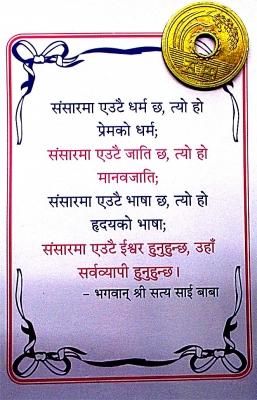 संसारमा एउटै धर्म छ, त्यो हो
प्रेमको धर्म;
संसारमा एउटै जाति छ, त्यो हो
मानवजाति;
संसारमा एउटै भाषा छ, त्यो हो
हृदयको भाषा;
संसारमा एउटै ईश्वर हुनुहुन्छ, उहाँ
सर्वव्यापी हुनुहुन्छ।
– भगवान् श्री सत्य साई बाबा